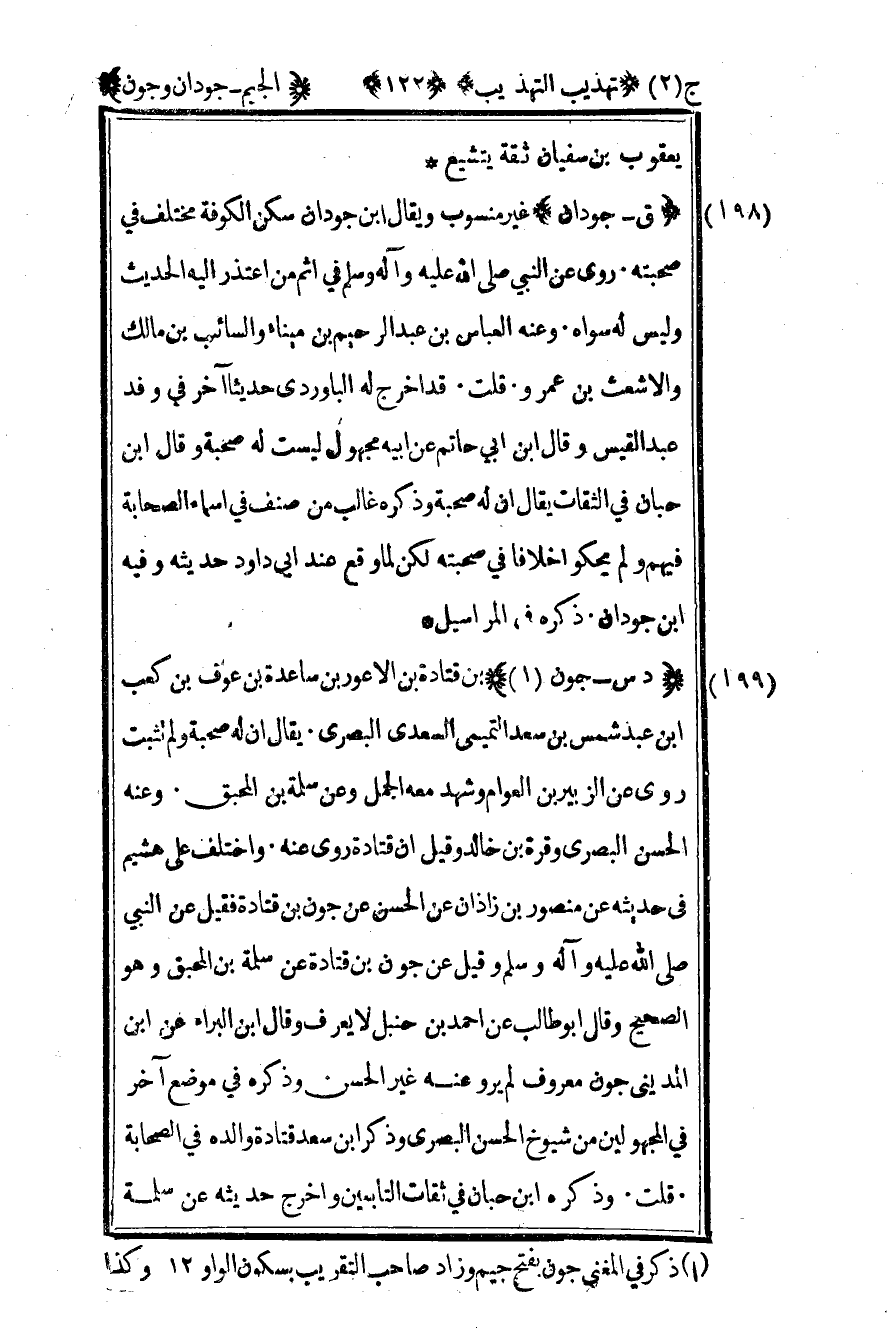 ج(٢) ﴿تهذيب التهذيب﴾ ﴿١٢٢﴾ ﴿الجيم-جودان وجون﴾
يعقوب بن سفيان ثقة يتشيع *
(١٩٨) ﴿ ق - جودان ﴾ غير منسوب ويقال ابن جودان سكن الكوفة مختلف في
صحبته . روى عن النبي صلى الله عليه وآله وسلم في اثم من اعتذر اليه الحديث
وليس له سواه . وعنه العباس بن عبدالرحيم بن ميناء والسائب بن مالك
والاشعث بن عمرو . قلت . قد اخرج له الباوردى حديثا آخر في وفد
عبدالقيس وقال ابن ابي حاتم عن ابيه مجهول ليست له صحبة وقال ابن
حبان في الثقات يقال ان له صحبة وذكره غالب من صنف في اسماء الصحابة
فيهم ولم يحكوا اخلافا في صحبته لكن لما وقع عند ابي داود حديثه وفيه
ابن جودان . ذكره ، المراسيل *
(١٩٩) ﴿ د س - جون (١) ﴾ بن قتادة بن الاعور بن ساعدة بن عوف بن كعب
ابن عبد شمس بن سعد التميمى السعدى البصرى . يقال ان له صحبة ولم تثبت
روى عن الزبير بن العوام وشهد معه الجمل وعن سلمة بن المحبق . وعنه
الحسن البصرى وقرة بن خالد وقيل ان قتادة روى عنه . واختلف على هشيم
فى حديثه عن منصور بن زاذان عن الحسن عن جون بن قتادة فقيل عن النبي
صلى الله عليه وآله وسلم وقيل عن جون بن قتادة عن سلمة بن المحبق وهو
الصحيح وقال ابو طالب عن احمد بن حنبل لا يعرف وقال ابن البراء عن ابن
المدينى جون معروف لم يرو عنه غير الحسن وذكره في موضع آخر
في المجهولين من شيوخ الحسن البصرى وذكر ابن سعد قتادة والده في الصحابة
. قلت . وذكره ابن حبان في ثقات التابعين واخرج حديثه عن سلمة
(١) ذكر في المغني جون بفتح جيم وزاد صاحب التقريب بسكون الواو ١٢ وكذا